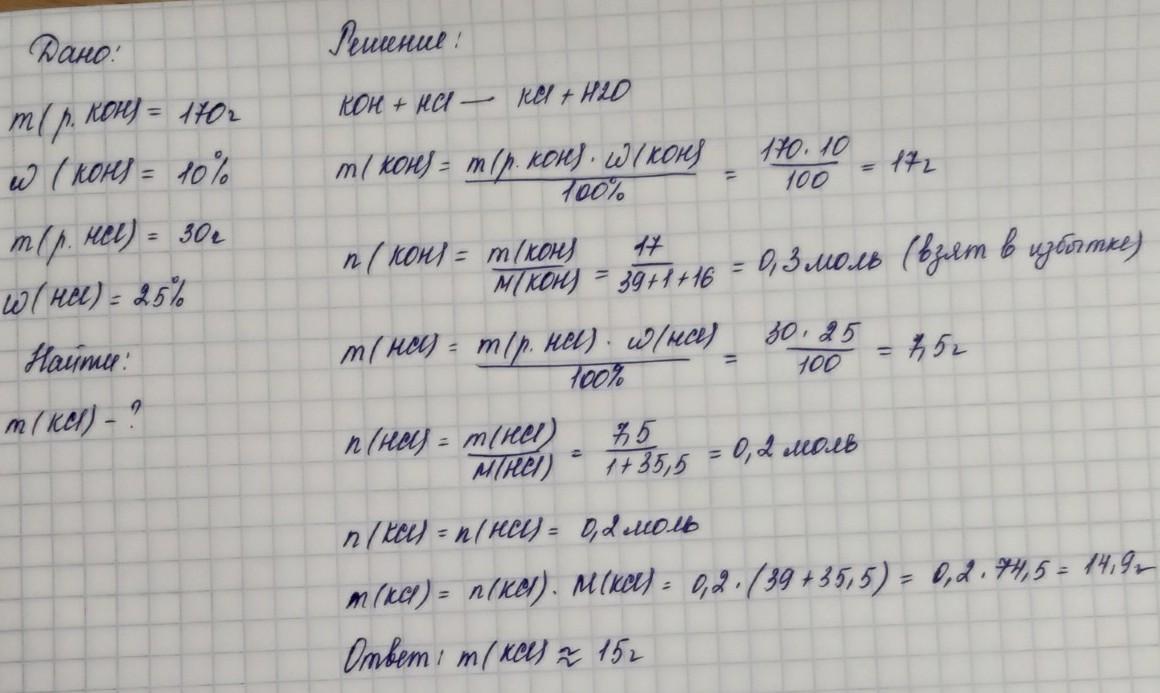 Дано:
m(р. KOH) = 170г
ω (KOH) = 10%
m(р. HCl) = 30г
ω(HCl) = 25%
Найти:
m(KCl) - ?
Решение:
KOH + HCl — KCl + H2O
m(KOH) = m(р. KOH) · ω(KOH) / 100% = 170 · 10 / 100 = 17г
n(KOH) = m(KOH) / M(KOH) = 17 / 39+1+16 = 0,3 моль (взят в избытке)
m(HCl) = m(р. HCl) · ω(HCl) / 100% = 30 · 25 / 100 = 7,5г
n(HCl) = m(HCl) / M(HCl) = 7,5 / 1+35,5 = 0,2 моль
n(KCl) = n(HCl) = 0,2 моль
m(KCl) = n(KCl) · M(KCl) = 0,2 · (39 + 35,5) = 0,2 · 74,5 = 14,9г
Ответ: m(KCl) ≈ 15г